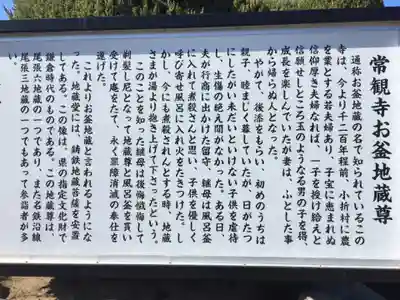 常観寺お釜地蔵尊
通称お釜地蔵の名で知られているこの
寺は、今より千二百年程前、小折村に農
を業とする若夫婦あり、子宝に恵まれぬ
信仰厚き夫婦なれば、一子を授け給えと
信願せしところ玉のような男の子を得、
成長を楽しんでいたが妻は、ふとした事
から帰らぬ人となった。
やがて、後添をもらい、初めのうちは
親子、睦まじく暮していたが、日がたつ
にしたがい未だいといけない子供を虐待
し、生傷の絶え間がなかった。ある日、
夫が行商に出かけた留守、継母は風呂釜
に入れて煮殺さんと思い、子供を優しく
呼び寄せ風呂に入れ火をたきつけた。し
かし、今にも煮殺されんとする時、地蔵
さまが湯より抱き上げて下さったという。
このことを知った継母は後悔懺悔して
剃髪し尼となって地蔵尊と風呂釜を貰い
受けて庵をたて、永く罪障消滅の奉仕を
遂げた。
これよりお釜地蔵と言われるようにな
った。地蔵堂には、鋳鉄地蔵菩薩を安置
してある。この像は、県の指定文化財で
鎌倉時代のものである。この地蔵尊は、
尾張六地蔵の一つであり、また名鉄沿線
尾張三地蔵の一つでもあって参詣者が多
い。